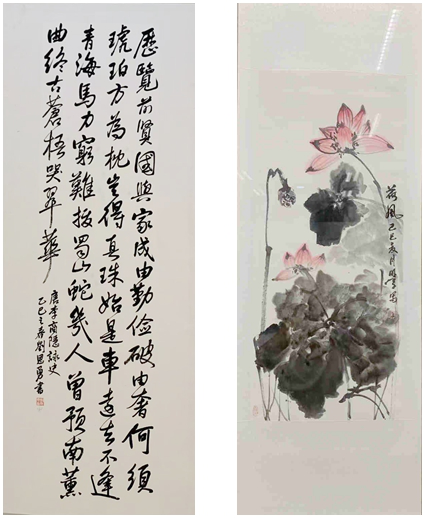 歷覽前賢國與家成由勤俭破由奢何須
琥珀方為枕豈得真珠始是車遠去不逢
青海馬力窮難拔蜀山蛇幾人曾預南薰
曲終古蒼梧哭翠華
唐李商隱詠史
乙巳之春劉思勇書
荷風 乙巳夏月